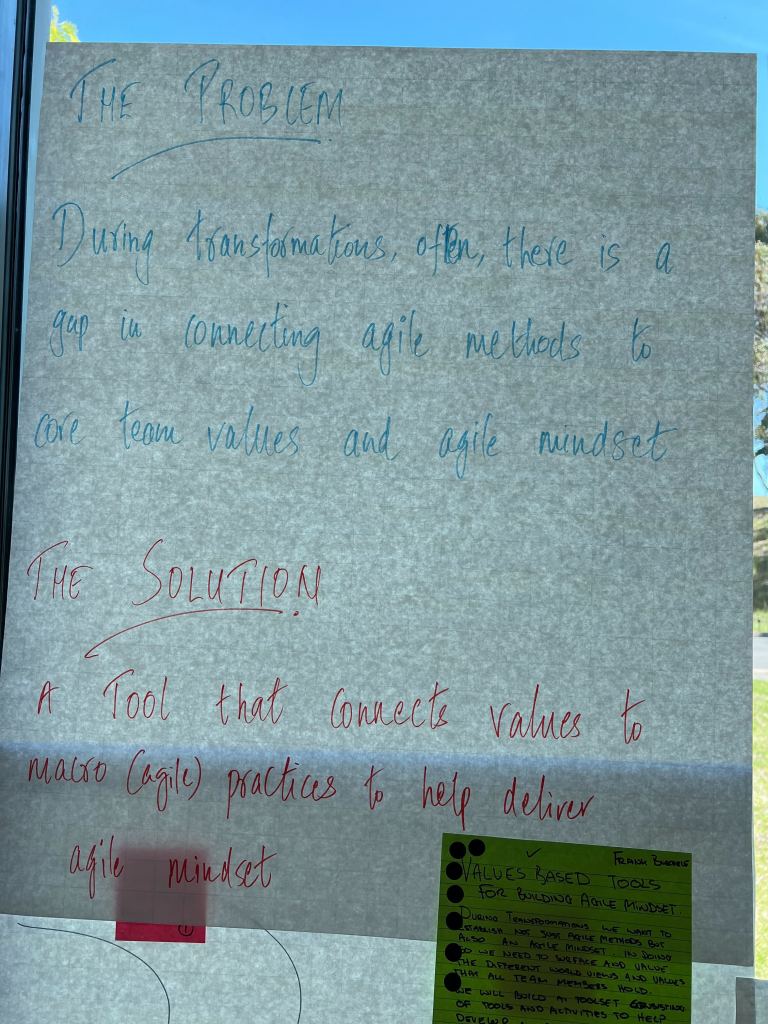 THE PROBLEM
During transformations, often, there is a
gap in connecting agile methods to
core team values and agile mindset
THE SOLUTION
A Tool that connects values to
macro (agile) practices to help deliver
agile mindset
FRANK
VALUES BASED TOOLS
FOR BUILDING AGILE MINDSET.
DURING TRANSFORMATIONS WE WANT TO
ESTABLISH NOT JUST AGILE METHODS BUT
ALSO AN AGILE MINDSET. IN DOING
SO WE NEED TO SURFACE AND VALUE
THE DIFFERENT WORLD VIEWS AND VALUES
THAT ALL TEAM MEMBERS HOLD.
WE WILL BUILD A TOOLSET CONSISTING
OF TOOLS AND ACTIVITIES TO HELP
DEVELOP